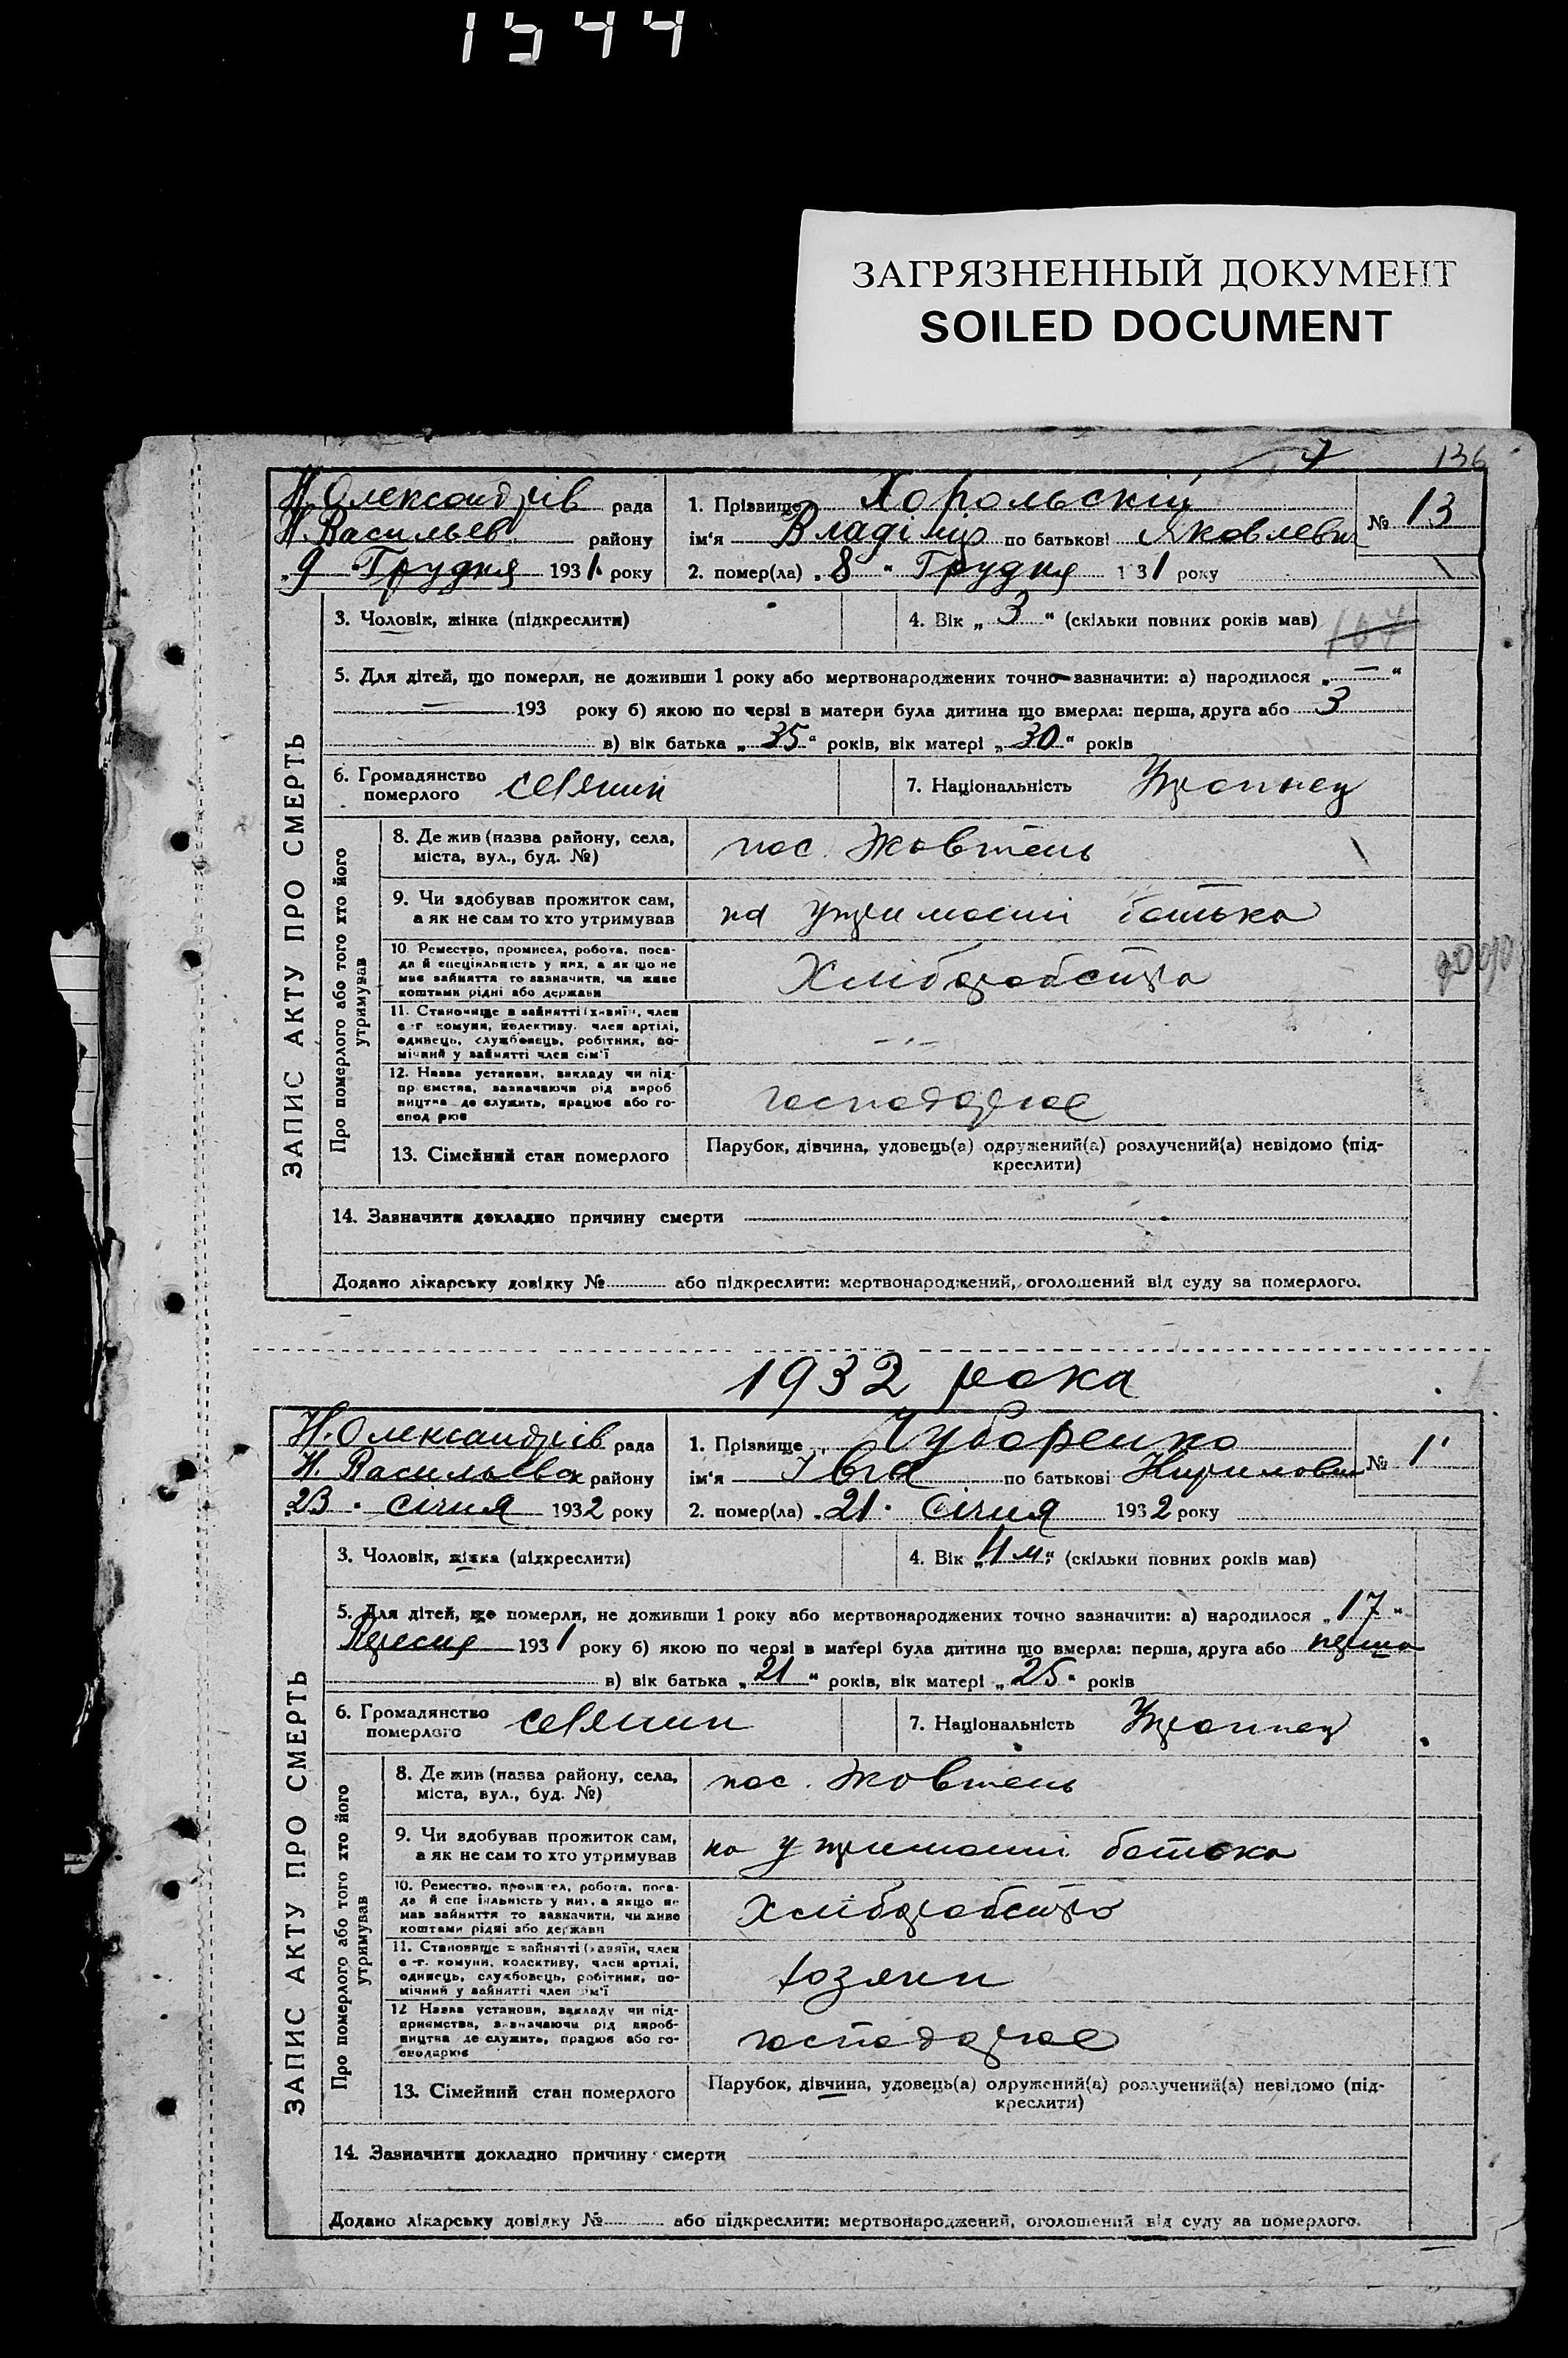 1544
ЗАГРЯЗНЕННЫЙ ДОКУМЕНТ
SOILED DOCUMENT
136
Н.Олександрів рада
Н.Васильев. району
„9 Грудня 1931 року
1. Прізвище Хорольскій
ім'я Владімір по батькові Яковлевич
№ 13
2. помер(ла) „8" Грудня 1931 року
ЗАПИС АКТУ ПРО СМЕРТЬ
3. Чоловік, жінка (підкреслити)
4. Вік „3" (скільки повних років мав)
5. Для дітей, що померли, не доживши 1 року або мертвонароджених точно зазначити: а) народилося „—"
— 193 року б) якою по черзі в матери була дитина що вмерла: перша, друга або 3
в) вік батька „35" років, вік матері „30" років
6. Громадянство
померлого
селянин
7. Національність Українец
Про померлого або того хто його
утримував
8. Де жив (назва району, села,
міста, вул., буд. №)
пос. Жовтень
9. Чи здобував прожиток сам,
а як не сам то хто утримував
на утриманні батька
10. Ремество, промисел, робота, поса-
да й спеціяльність у них, а як що не
мав зайняття то зазначити, чи живе
коштами рідні або держави
Хліборобство
11. Становище в зайнятті (хазяїн, член
с-г комуни, колективу, член артілі,
одинець, службовець, робітник, по-
мічний у зайнятті член сім'ї
12. Назва установи, закладу чи під-
приємства, зазначаючи рід вироб
ництва де служить, працює або го-
сподарює
господарює
13. Сімейний стан померлого
Парубок, дівчина, удовець(а) одружений(а) розлучений(а) невідомо (під-
креслити)
14. Зазначити докладно причину смерти
Додано лікарську довідку № або підкреслити: мертвонароджений, оголошений від суду за померлого.
1932 рока
Н.Олександрів рада
Н. Васильевск району
23 січня 1932 року
1. Прізвище Чубаренко
ім'я Івга по батькові Кирилов
№ 1
2. помер(ла) „21" Січня 1932 року
ЗАПИС АКТУ ПРО СМЕРТЬ
3. Чоловік, жінка (підкреслити)
4. Вік „4 м." (скільки повних років мав)
5. Для дітей, що померли, не доживши 1 року або мертвонароджених точно зазначити: а) народилося „17"
Вересня 1931 року б) якою по черзі в матері була дитина що вмерла: перша, друга або перша
в) вік батька „21" років, вік матері „25" років
6. Громадянство
померлого
селянин
7. Національність Українец
Про померлого або того хто його
утримував
8. Де жив (назва району, села,
міста, вул., буд. №)
пос. Жовтень
9. Чи здобував прожиток сам,
а як не сам то хто утримував
на утриманні батька
10. Ремество, промисел, робота, поса-
да й спеціяльність у них, а якщо не
мав зайняття то зазначити, чи живе
коштами рідні або держави
Хліборобство
11. Становище в зайнятті (хазяїн, член
с-г. комуни, колективу, член артілі,
одинець, службовець, робітник, по-
мічний у зайнятті член сім'ї
хозяин
12 Назва установи, закладу чи під-
приємства, зазначаючи рід вироб-
ництва де служить, працює або го-
сподарює
господарює
13. Сімейний стан померлого
Парубок, дівчина, удовець(а) одружений(а) розлучений(а) невідомо (під-
креслити)
14. Зазначити докладно причину смерти
Додано лікарську довідку № або підкреслити: мертвонароджений, оголошений від суду за померлого.